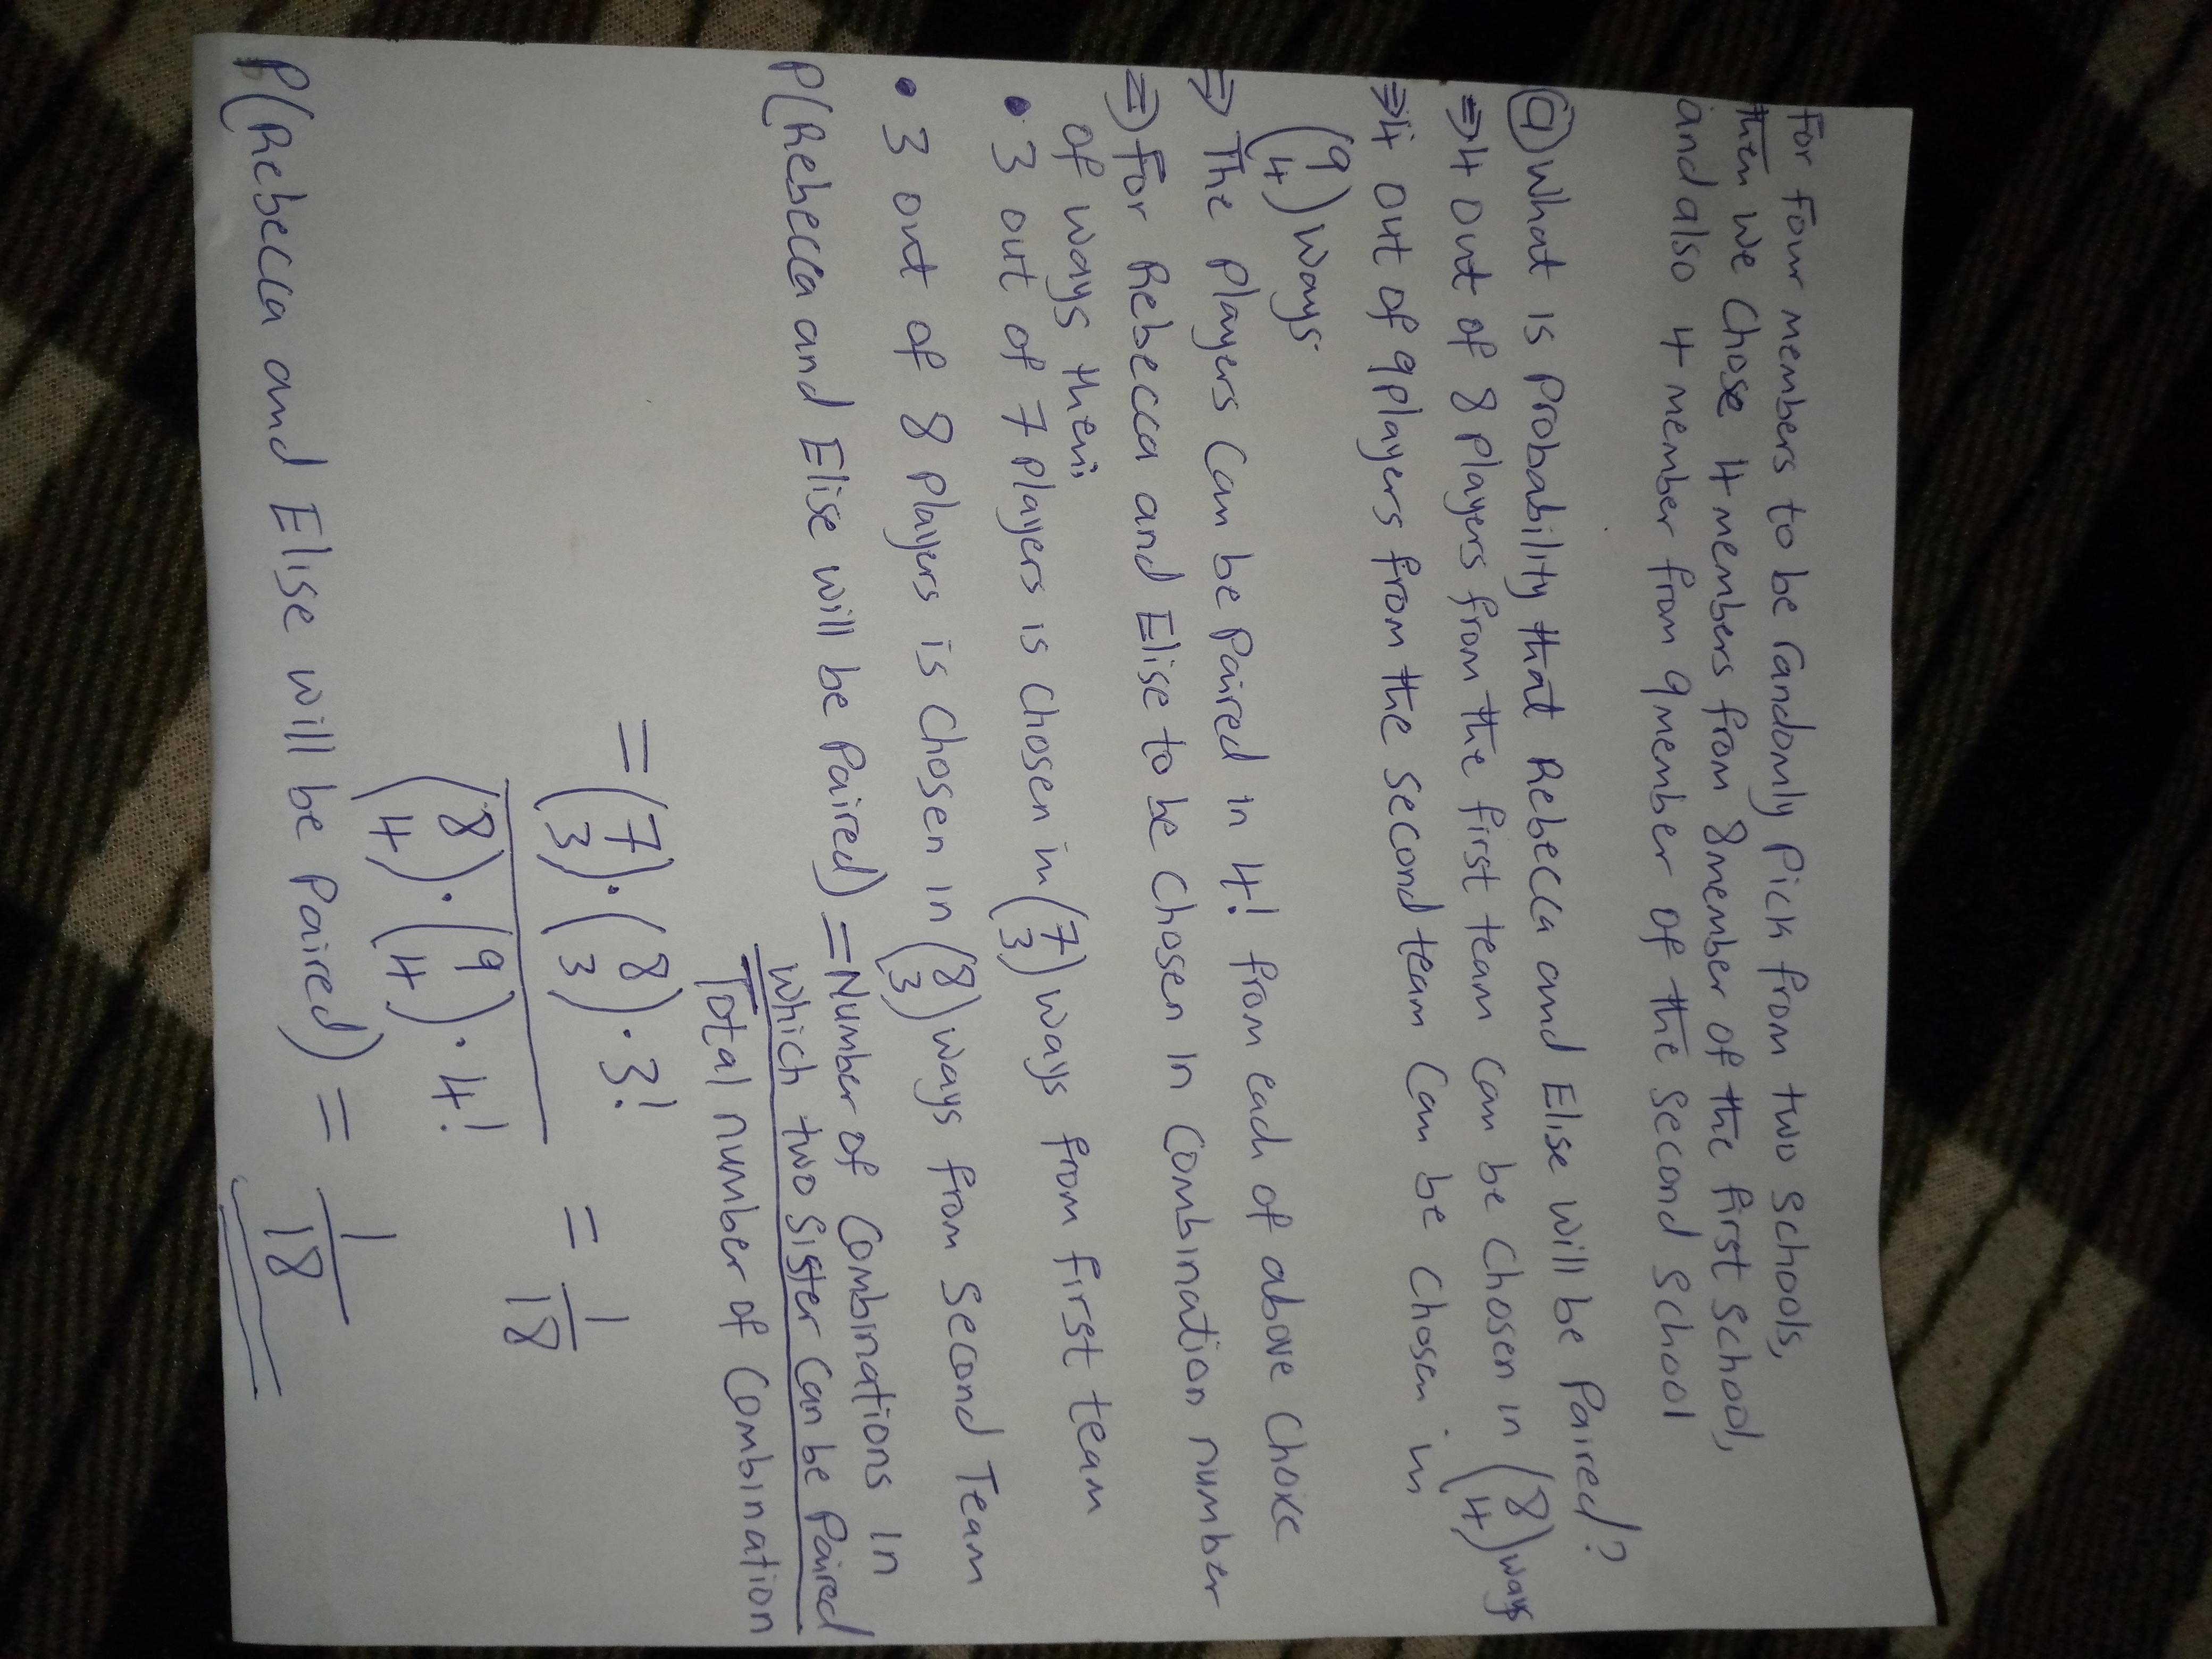 For four members to be randomly Pick from two schools,
then we chose 4 members from 8 member of the first school,
and also 4 member from 9 member of the second school
(a) What is Probability that Rebecca and Elise will be Paired?
⇒ 4 out of 8 Players from the first team can be chosen in (8 4) ways
⇒ 4 out of 9 Players from the second team can be chosen in
(9 4) ways.
⇒ The Players can be Paired in 4! from each of above choice
⇒ For Rebecca and Elise to be chosen in Combination number
of ways then;
• 3 out of 7 Players is chosen in (7 3) ways from first team
• 3 out of 8 Players is chosen in (8 3) ways from second Team
P(Rebecca and Elise will be Paired) = Number of Combinations in
which two sister can be Paired
Total number of Combination
= (7 3) · (8 3) · 3!
(8 4) · (9 4) · 4!
= 1/18
P(Rebecca and Elise will be Paired) = 1/18